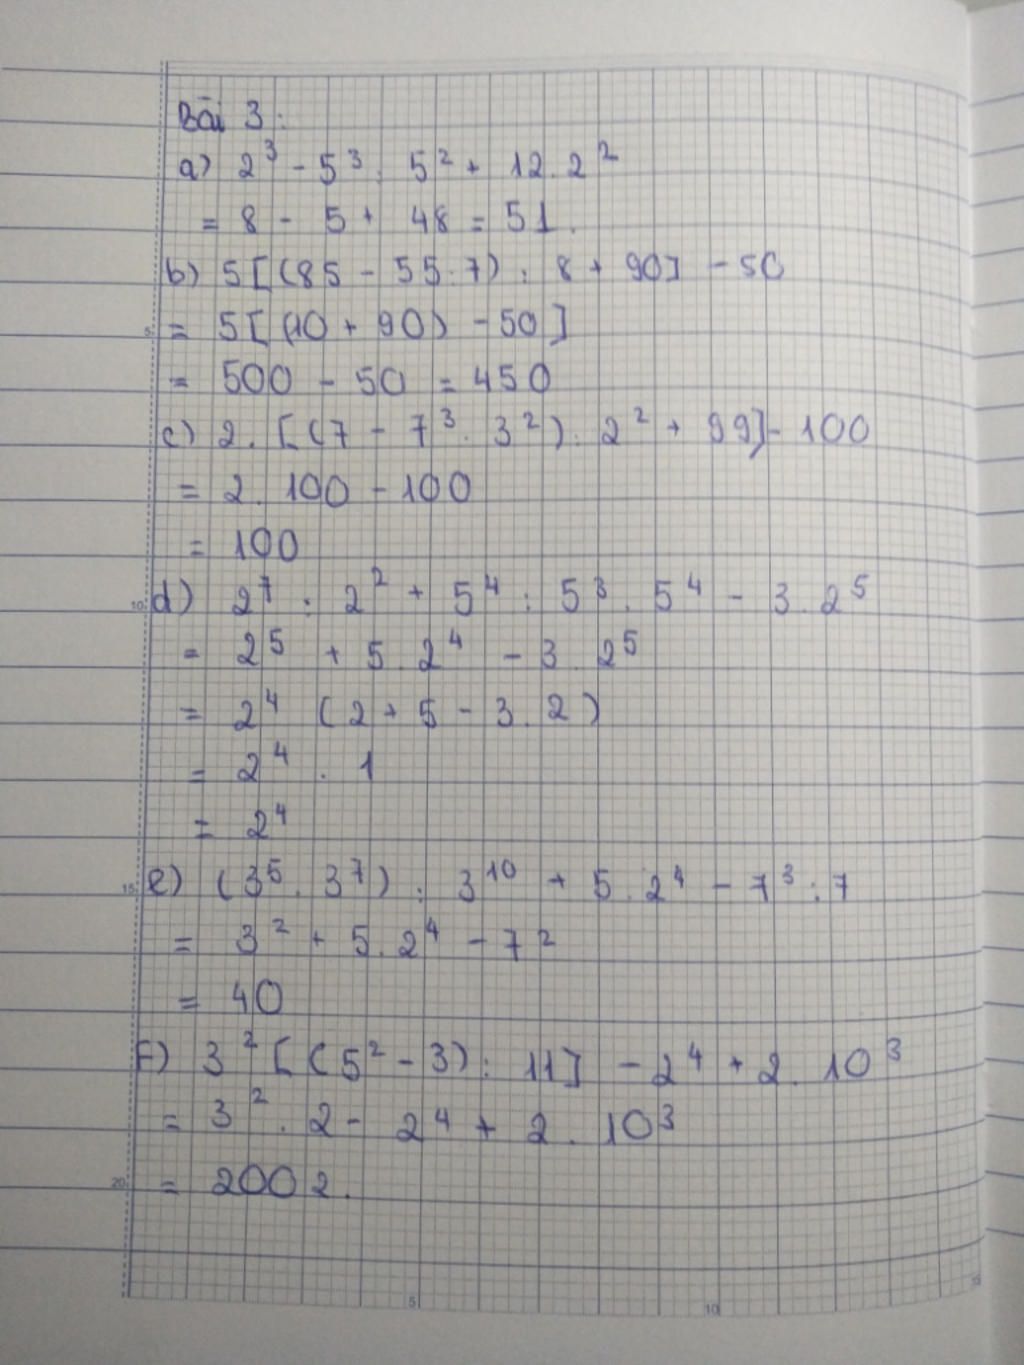 Bài 3:
a) 2³ - 5³ : 5² + 12.2²
= 8 - 5 + 48 = 51.
b) 5[(85 - 55:7) : 8 + 90] - 50
= 5[(10 + 90) - 50]
= 500 - 50 = 450
c) 2.[(7 - 7³ : 3²) : 2² + 99] - 100
= 2. 100 - 100
= 100
d) 2⁷ : 2² + 5⁴ : 5³ . 5⁴ - 3.2⁵
= 2⁵ + 5.2⁴ - 3.2⁵
= 2⁴ (2 + 5 - 3.2)
= 2⁴ . 1
= 2⁴
e) (3⁵ . 3⁷) : 3¹⁰ + 5.2⁴ - 7³ : 7
= 3² + 5.2⁴ - 7²
= 40
F) 3² [(5² - 3) : 11] - 2⁴ + 2. 10³
= 3² . 2 - 2⁴ + 2 . 10³
= 2002.